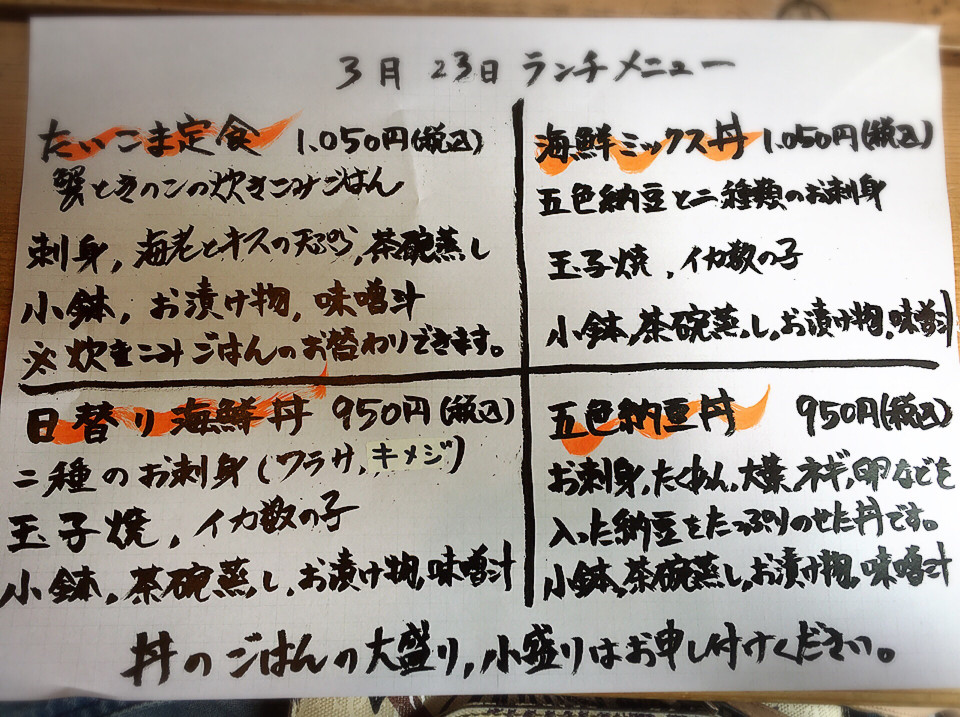 3月 23日 ランチメニュー
たいこま定食 1,050円(税込)
蟹ときのこの炊きこみごはん
刺身,海老とキスの天ぷら,茶碗蒸し
小鉢,お漬け物,味噌汁
※炊きこみごはんのお替わりできます。
海鮮ミックス丼 1,050円(税込)
五色納豆と二種類のお刺身
玉子焼,イカ数の子
小鉢,茶碗蒸し,お漬け物,味噌汁
日替り海鮮丼 950円(税込)
二種のお刺身(ワラサ,キメジ)
玉子焼,イカ数の子
小鉢,茶碗蒸し,お漬け物,味噌汁
五色納豆丼 950円(税込)
お刺身,たくあん,大葉,ネギ,卵などを
入った納豆をたっぷりのせた丼です。
小鉢,茶碗蒸し,お漬け物,味噌汁
丼のごはんの大盛り,小盛りはお申し付けください。